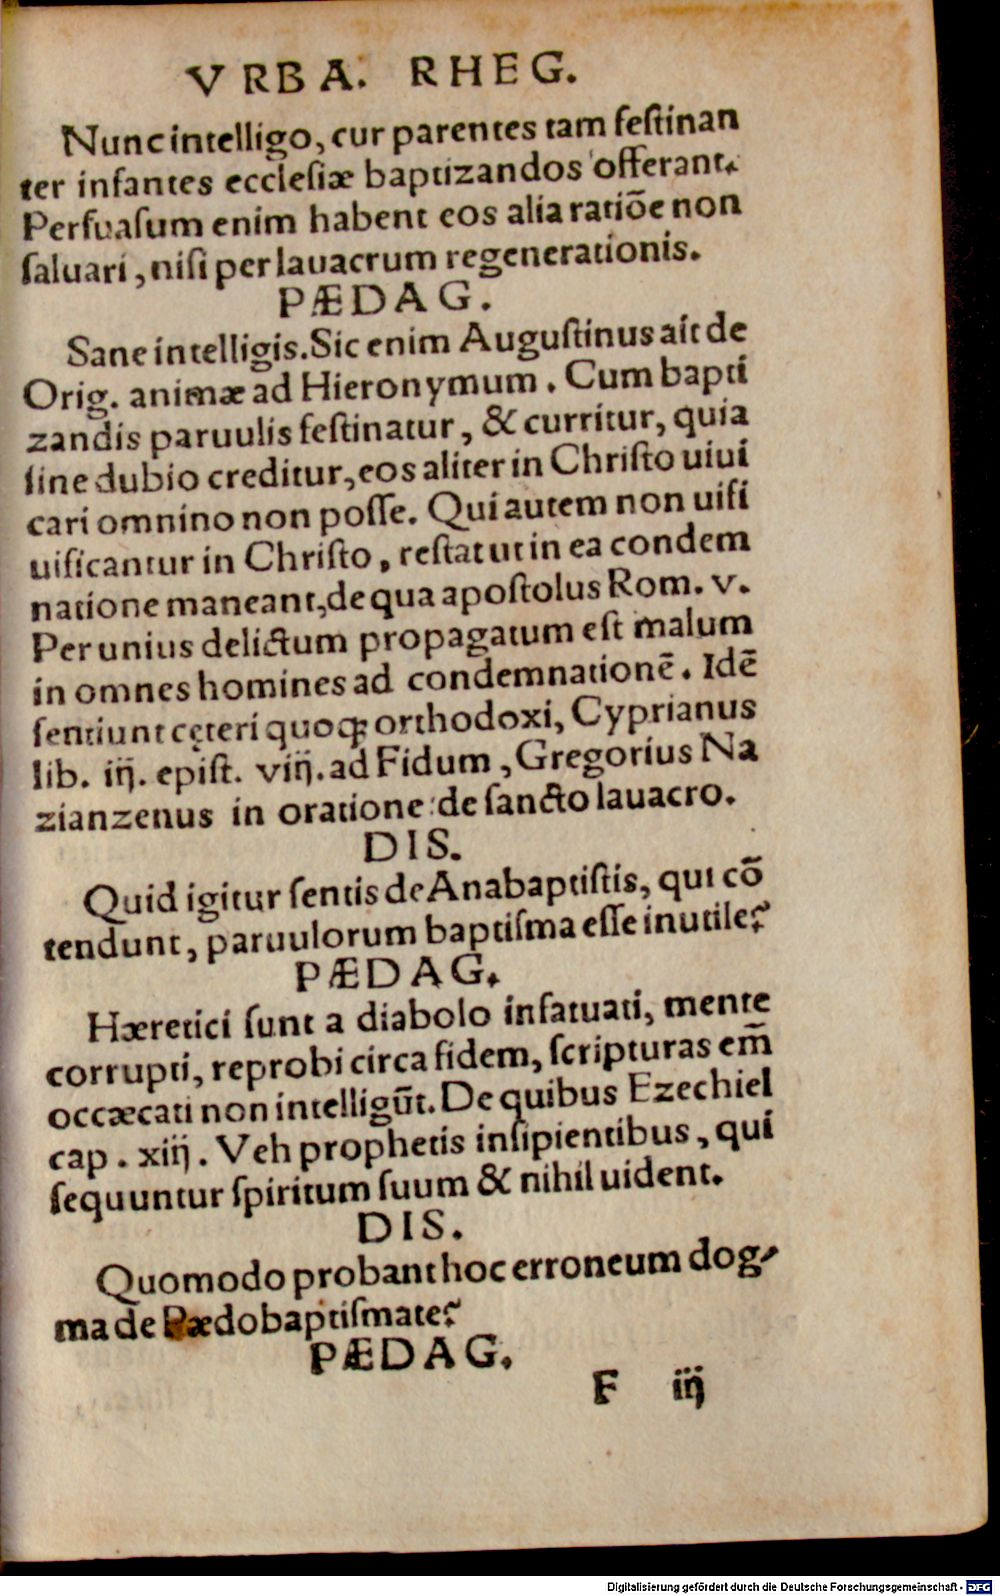 VRBA. RHEG.
Nunc intelligo, cur parentes tam feſtinan
ter infantes eccleſiæ baptizandos offerant.
Perſuaſum enim habent eos alia ratiõe non
ſaluari, niſi per lauacrum regenerationis.
PÆDAG.
Sane intelligis. Sic enim Auguſtinus ait de
Orig. animæ ad Hieronymum. Cum bapti
zandis paruulis feſtinatur, & curritur, quia
ſine dubio creditur, eos aliter in Chriſto uiui
cari omnino non poſſe. Qui autem non uifi
uificantur in Chriſto, reſtat ut in ea condem
natione maneant, de qua apoſtolus Rom. v.
Per unius delictum propagatum eſt malum
in omnes homines ad condemnationẽ. Idẽ
ſentiunt cęteri quoqꝫ orthodoxi, Cyprianus
lib. iij. epiſt. viij. ad Fidum, Gregorius Na
zianzenus in oratione de ſancto lauacro.
DIS.
Quid igitur ſentis de Anabaptiſtis, qui cõ
tendunt, paruulorum baptiſma eſſe inutile?
PÆDAG.
Hæretici ſunt a diabolo infatuati, mente
corrupti, reprobi circa fidem, ſcripturas em̃
occæcati non intelligũt. De quibus Ezechiel
cap. xiij. Veh prophetis inſipientibus, qui
ſequuntur ſpiritum ſuum & nihil uident.
DIS.
Quomodo probant hoc erroneum dog-
ma de Pædobaptiſmate?
PÆDAG.
F iij
Digitalisierung gefördert durch die Deutsche Forschungsgemeinschaft - DFG